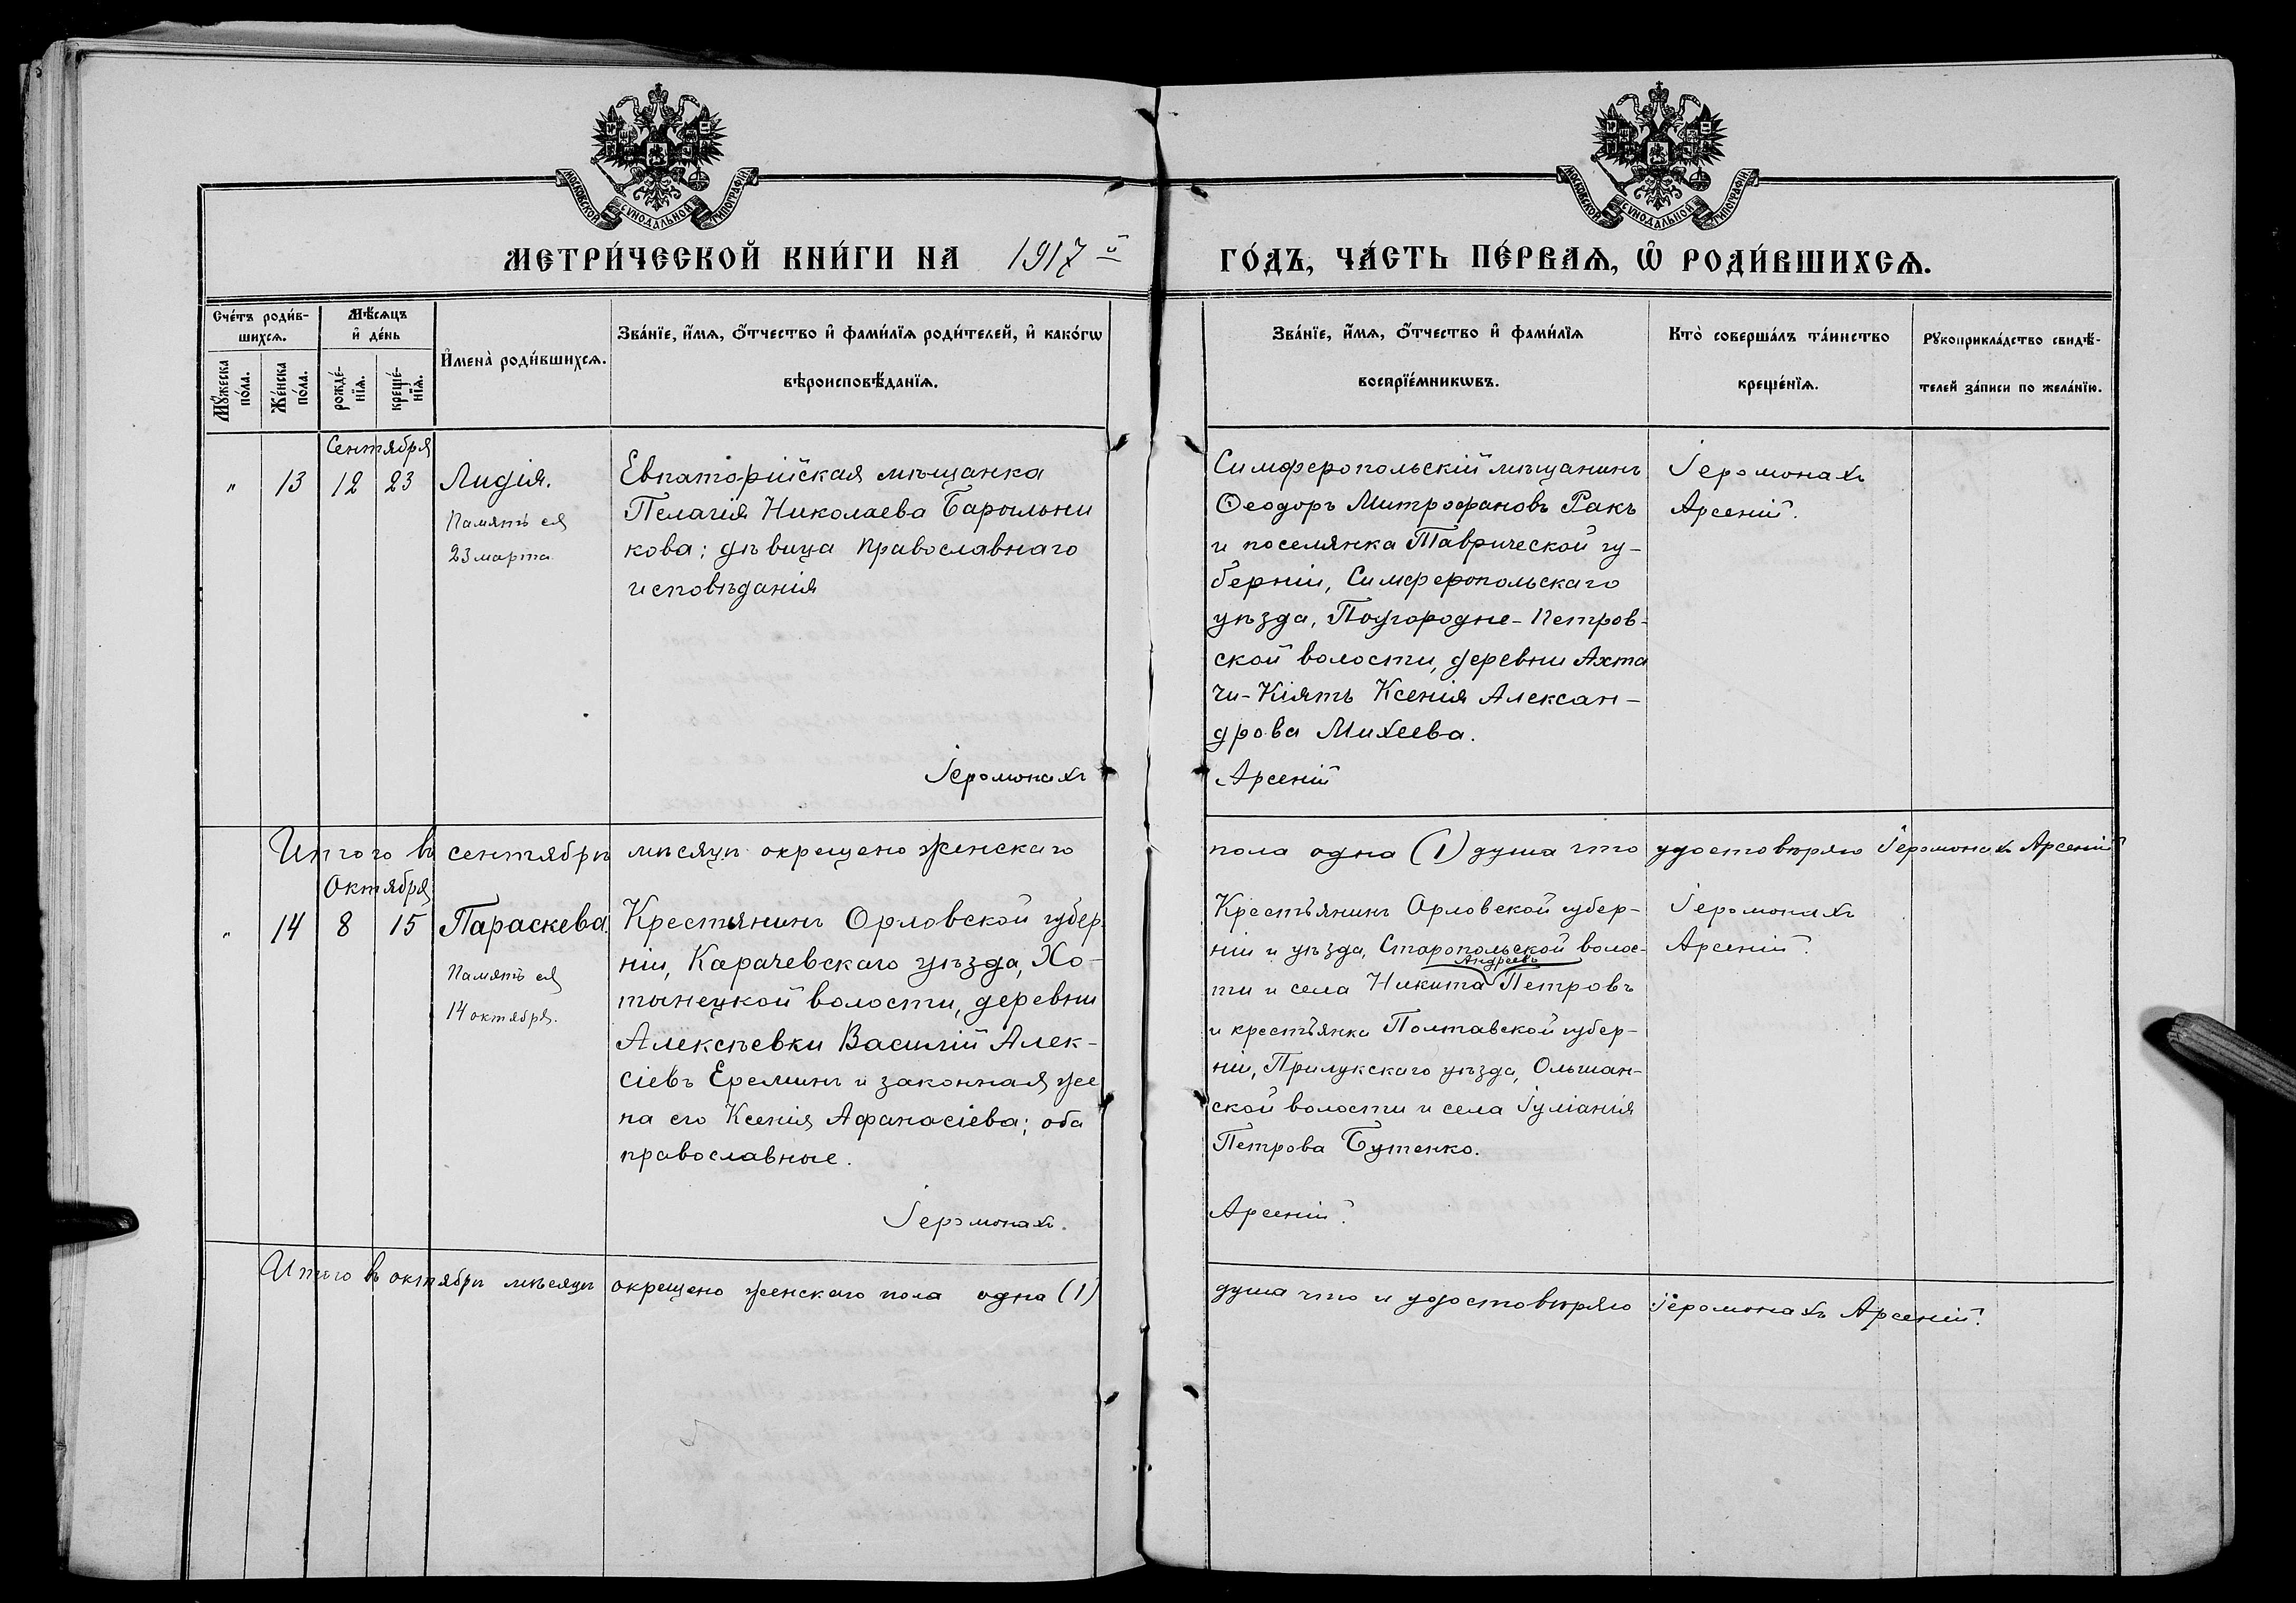 МОСКОВСКОЙ СѴНОДАЛЬНОЙ ТИПОГРАФІИ
МОСКОВСКОЙ СѴНОДАЛЬНОЙ ТИПОГРАФІИ
МЕТРИ́ЧЕСКОЙ КНИ́ГИ НА 1917й ГО́ДЪ, ЧА́СТЬ ПЕ́РВАѦ, Ѡ҆ РОДИ́ВШИХСѦ.
Счéтъ роди́в-
шихсѧ.
Мꙋ́жеска
по́ла.
Же́нска
по́ла.
Мѣ́сѧцъ
и҆ де́нь
рожде́-
нїѧ.
креще́-
нїѧ.
И҆мена̀ роди́вшихсѧ.
Зва́нїе, и҆́мѧ, ѻ҆́тчество и҆ фами́лїѧ роди́телей, и҆ како́гѡ
вѣроисповѣ́данїѧ.
Зва́нїе, и҆́мѧ, ѻ҆́тчество и҆ фами́лїѧ
воспрїе́мникѡвъ.
Кто̀ соверша́лъ та́инство
креще́нїѧ.
Рꙋкоприкла́дство свидѣ́-
телей за́писи по жела́нїю.
Сентября
" 13 12 23
Лидія.
Память ея
23 марта
Евпаторійская мѣщанка
Пелагія Николаева Барыльни
кова; дѣвица православнаго
исповѣданія
Іеромонахъ
Симферопольскій мѣщанинъ
Ѳеодоръ Митрофановъ Ракъ
и поселянка Таврической гу-
берніи, Симферопольскаго
уѣзда, Подгородне-Петров-
ской волости, деревни Ахта
чи-Кіятъ Ксенія Алексан-
дрова Михеева.
Арсеній
Іеромонахъ
Арсеній.
Итого въ сентябрѣ мѣсяцѣ окрещено женскаго пола одна (1) душа что удостовѣряю Іеромонахъ Арсеній
Октября
" 14 8 15
Параскева.
Память ея
14 октября.
Крестьянинъ Орловской губер
ніи, Карачевскаго уѣзда, Хо-
тынецкой волости, деревни
Алексѣевки Василій Алек-
сіевъ Ереминъ и законная же
на его Ксенія Афанасіева; оба
православные.
Іеромонахъ.
Крестьянинъ Орловской губер-
ніи и уѣзда, Старопольской волос-
Андреевъ
ти и села Никита Петровъ
и крестьянка Полтавской губер-
ніи, Прилукскаго уѣзда, Ольшан-
ской волости и села Іуліанія
Петрова Бутенко.
Арсеній.
Іеромонахъ
Арсеній.
Итого въ октябрѣ мѣсяцѣ окрещено женскаго пола одна (1) душа что и удостовѣряю Іеромонахъ Арсеній.